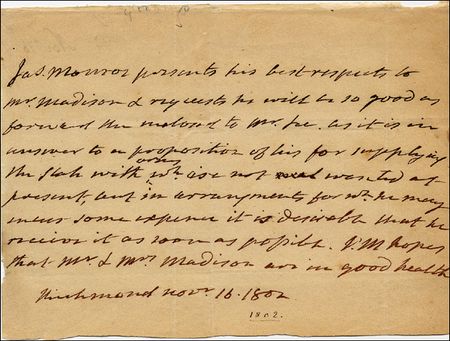 Jas. Monroe presents his best respects to
Mr. Madison & requests he will be so good as
forward the inclosed to Mr. Lee. as it is in
answer to a proposition of his for supplying
arms
the State with wh. are not wanted at
present, but in arrangements for wh. he may
incur some expence it is desirable that he
receive it as soon as possible. J.M hopes
that Mr. & Mrs. Madison are in good health
Richmond novr. 16. 1802
1802.